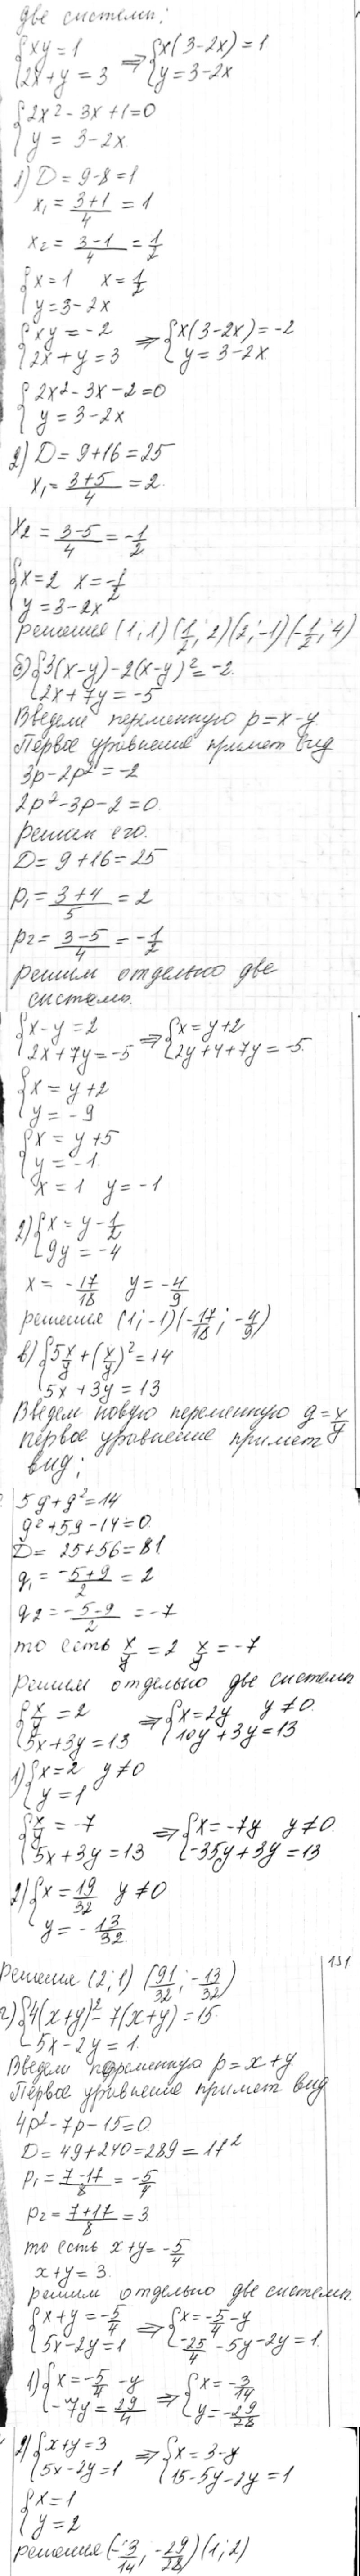 две системы:
{xy = 1 ⇒ {x(3-2x) = 1
{2x+y = 3 {y = 3-2x
{2x² - 3x + 1 = 0
{y = 3-2x
1) D = 9-8 = 1
x₁ = (3+1)/4 = 1
x₂ = (3-1)/4 = 1/2
{x = 1 x = 1/2
{y = 3-2x
{xy = -2 ⇒ {x(3-2x) = -2
{2x+y = 3 {y = 3-2x
{2x² - 3x - 2 = 0
{y = 3-2x
2) D = 9+16 = 25
x₁ = (3+5)/4 = 2
x₂ = (3-5)/4 = -1/2
{x = 2 x = -1/2
{y = 3-2x
решения (1; 1) (1/2; 2) (2; -1) (-1/2; 4)
б) {3(x-y) - 2(x-y)² = -2
{2x+7y = -5
Введем переменную p = x-y
Первое уравнение примет вид
3p - 2p² = -2
2p² - 3p - 2 = 0
решим его.
D = 9+16 = 25
p₁ = (3+4)/5 = 2
p₂ = (3-5)/4 = -1/2
решим отдельно две
системы.
{x-y = 2 ⇒ {x = y+2
{2x+7y = -5 {2y+4+7y = -5
{x = y+2
{y = -9
{x = y+5
{y = -1
x = 1 y = -1
2) {x = y - 1/2
{9y = -4
x = -17/18 y = -4/9
решения (1; -1) (-17/18; -4/9)
в) {5x/y + (x/y)² = 14
{5x+3y = 13
Введем новую переменную g = x/y
первое уравнение примет
вид;
5g + g² = 14
g² + 5g - 14 = 0
D = 25+56 = 81
g₁ = (-5+9)/2 = 2
g₂ = (-5-9)/2 = -7
то есть x/y = 2 x/y = -7
решим отдельно две системы
{x/y = 2 ⇒ {x = 2y y ≠ 0
{5x+3y = 13 {10y+3y = 13
1) {x = 2 y ≠ 0
{y = 1
{x/y = -7 ⇒ {x = -7y y ≠ 0
{5x+3y = 13 {-35y+3y = 13
2) {x = 19/32 y ≠ 0
{y = -13/32
131
решения (2; 1) (91/32; -13/32)
г) {4(x+y)² - 7(x+y) = 15
{5x-2y = 1
Введем переменную p = x+y
Первое уравнение примет вид
4p² - 7p - 15 = 0
D = 49+240 = 289 = 17²
p₁ = (7-17)/8 = -5/4
p₂ = (7+17)/8 = 3
то есть x+y = -5/4
x+y = 3
решим отдельно две системы.
{x+y = -5/4 ⇒ {x = -5/4 - y
{5x-2y = 1 {-25/4 - 5y - 2y = 1
1) {x = -5/4 - y ⇒ {x = -3/14
{-7y = 29/4 {y = -29/28
2) {x+y = 3 ⇒ {x = 3-y
{5x-2y = 1 {15-5y-2y = 1
{x = 1
{y = 2
решения (-3/14; -29/28) (1; 2)